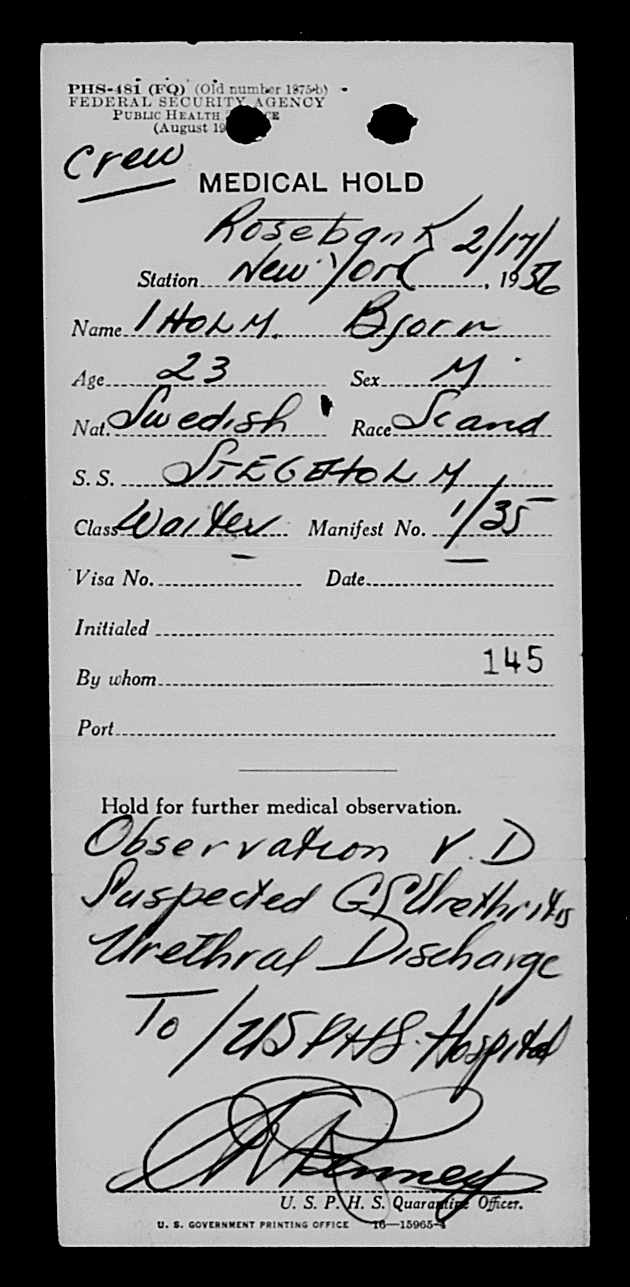 PHS-481 (FQ) (Old number 1975-b)
FEDERAL SECURITY AGENCY
PUBLIC HEALTH
(August 19
Crew
MEDICAL HOLD
Rosebank 2/17/
Station New York, 1956
Name IHOLM. Bjorn
Age 23 Sex M
Nat. Swedish Race Scand
S. S. STEGEHOLM
Class Waiter Manifest No. 1/35
Visa No. Date
Initialed
145
By whom
Port
Hold for further medical observation.
Observation V.D
Suspected GC Urethritis
Urethral Discharge
To / USPHS Hospital
Penney
U. S. P. H. S. Quarantine Officer.
U. S. GOVERNMENT PRINTING OFFICE 16—15965-1